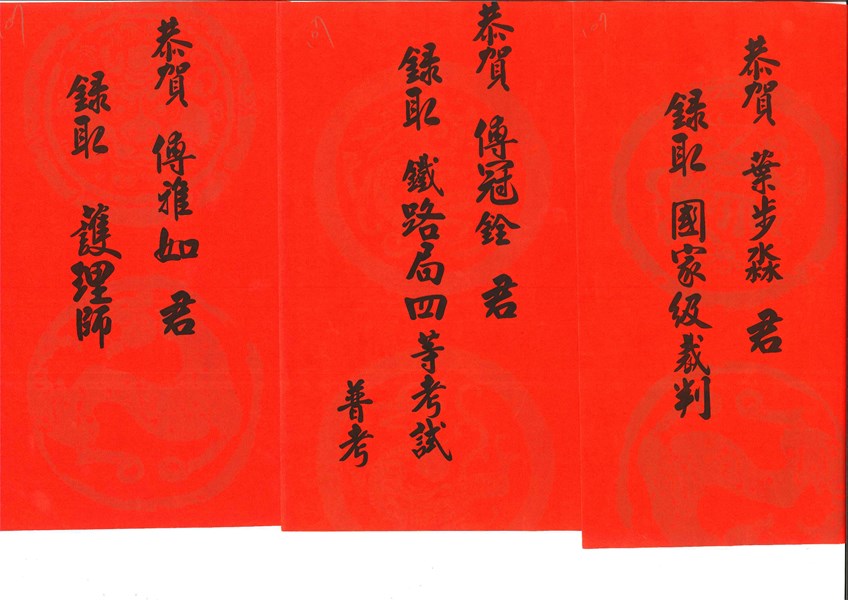 恭賀 葉步淼 君
錄取 國家級裁判
恭賀 傅冠銓 君
錄取 鐵路局四等考試
普考
恭賀 傅雅如 君
錄取 護理師